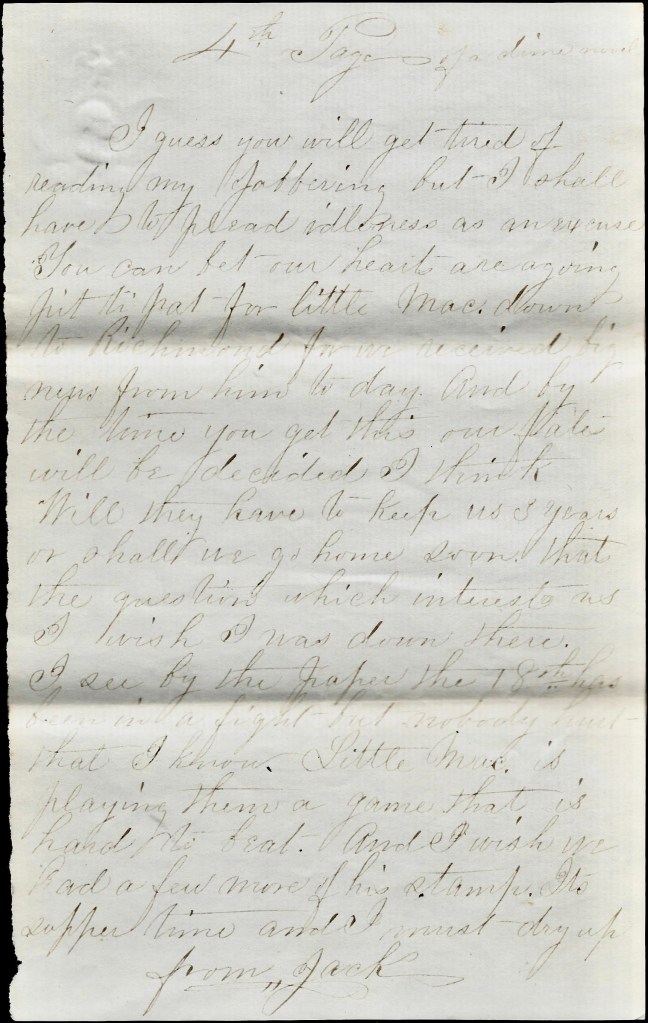 4th Page of a dime novel
I guess you will get tired of
reading my Jabbering but I shall
have to plead idleness as an excuse
You can bet our hearts are agoing
pit ti pat for little Mac. down
to Richmond for we received big
news from him to day. And by
the time you get this our fate
will be decided I think
Will they have to keep us 3 years
or shall we go home soon. that
the question which interests us
I wish I was down there.
I see by the paper the 18th has
been in a fight but nobody hurt
that I know. Little Mac. is
playing them a game that is
hard to beat. And I wish we
had a few more of his stamp. Its
supper time and I must dry up
from " Jack